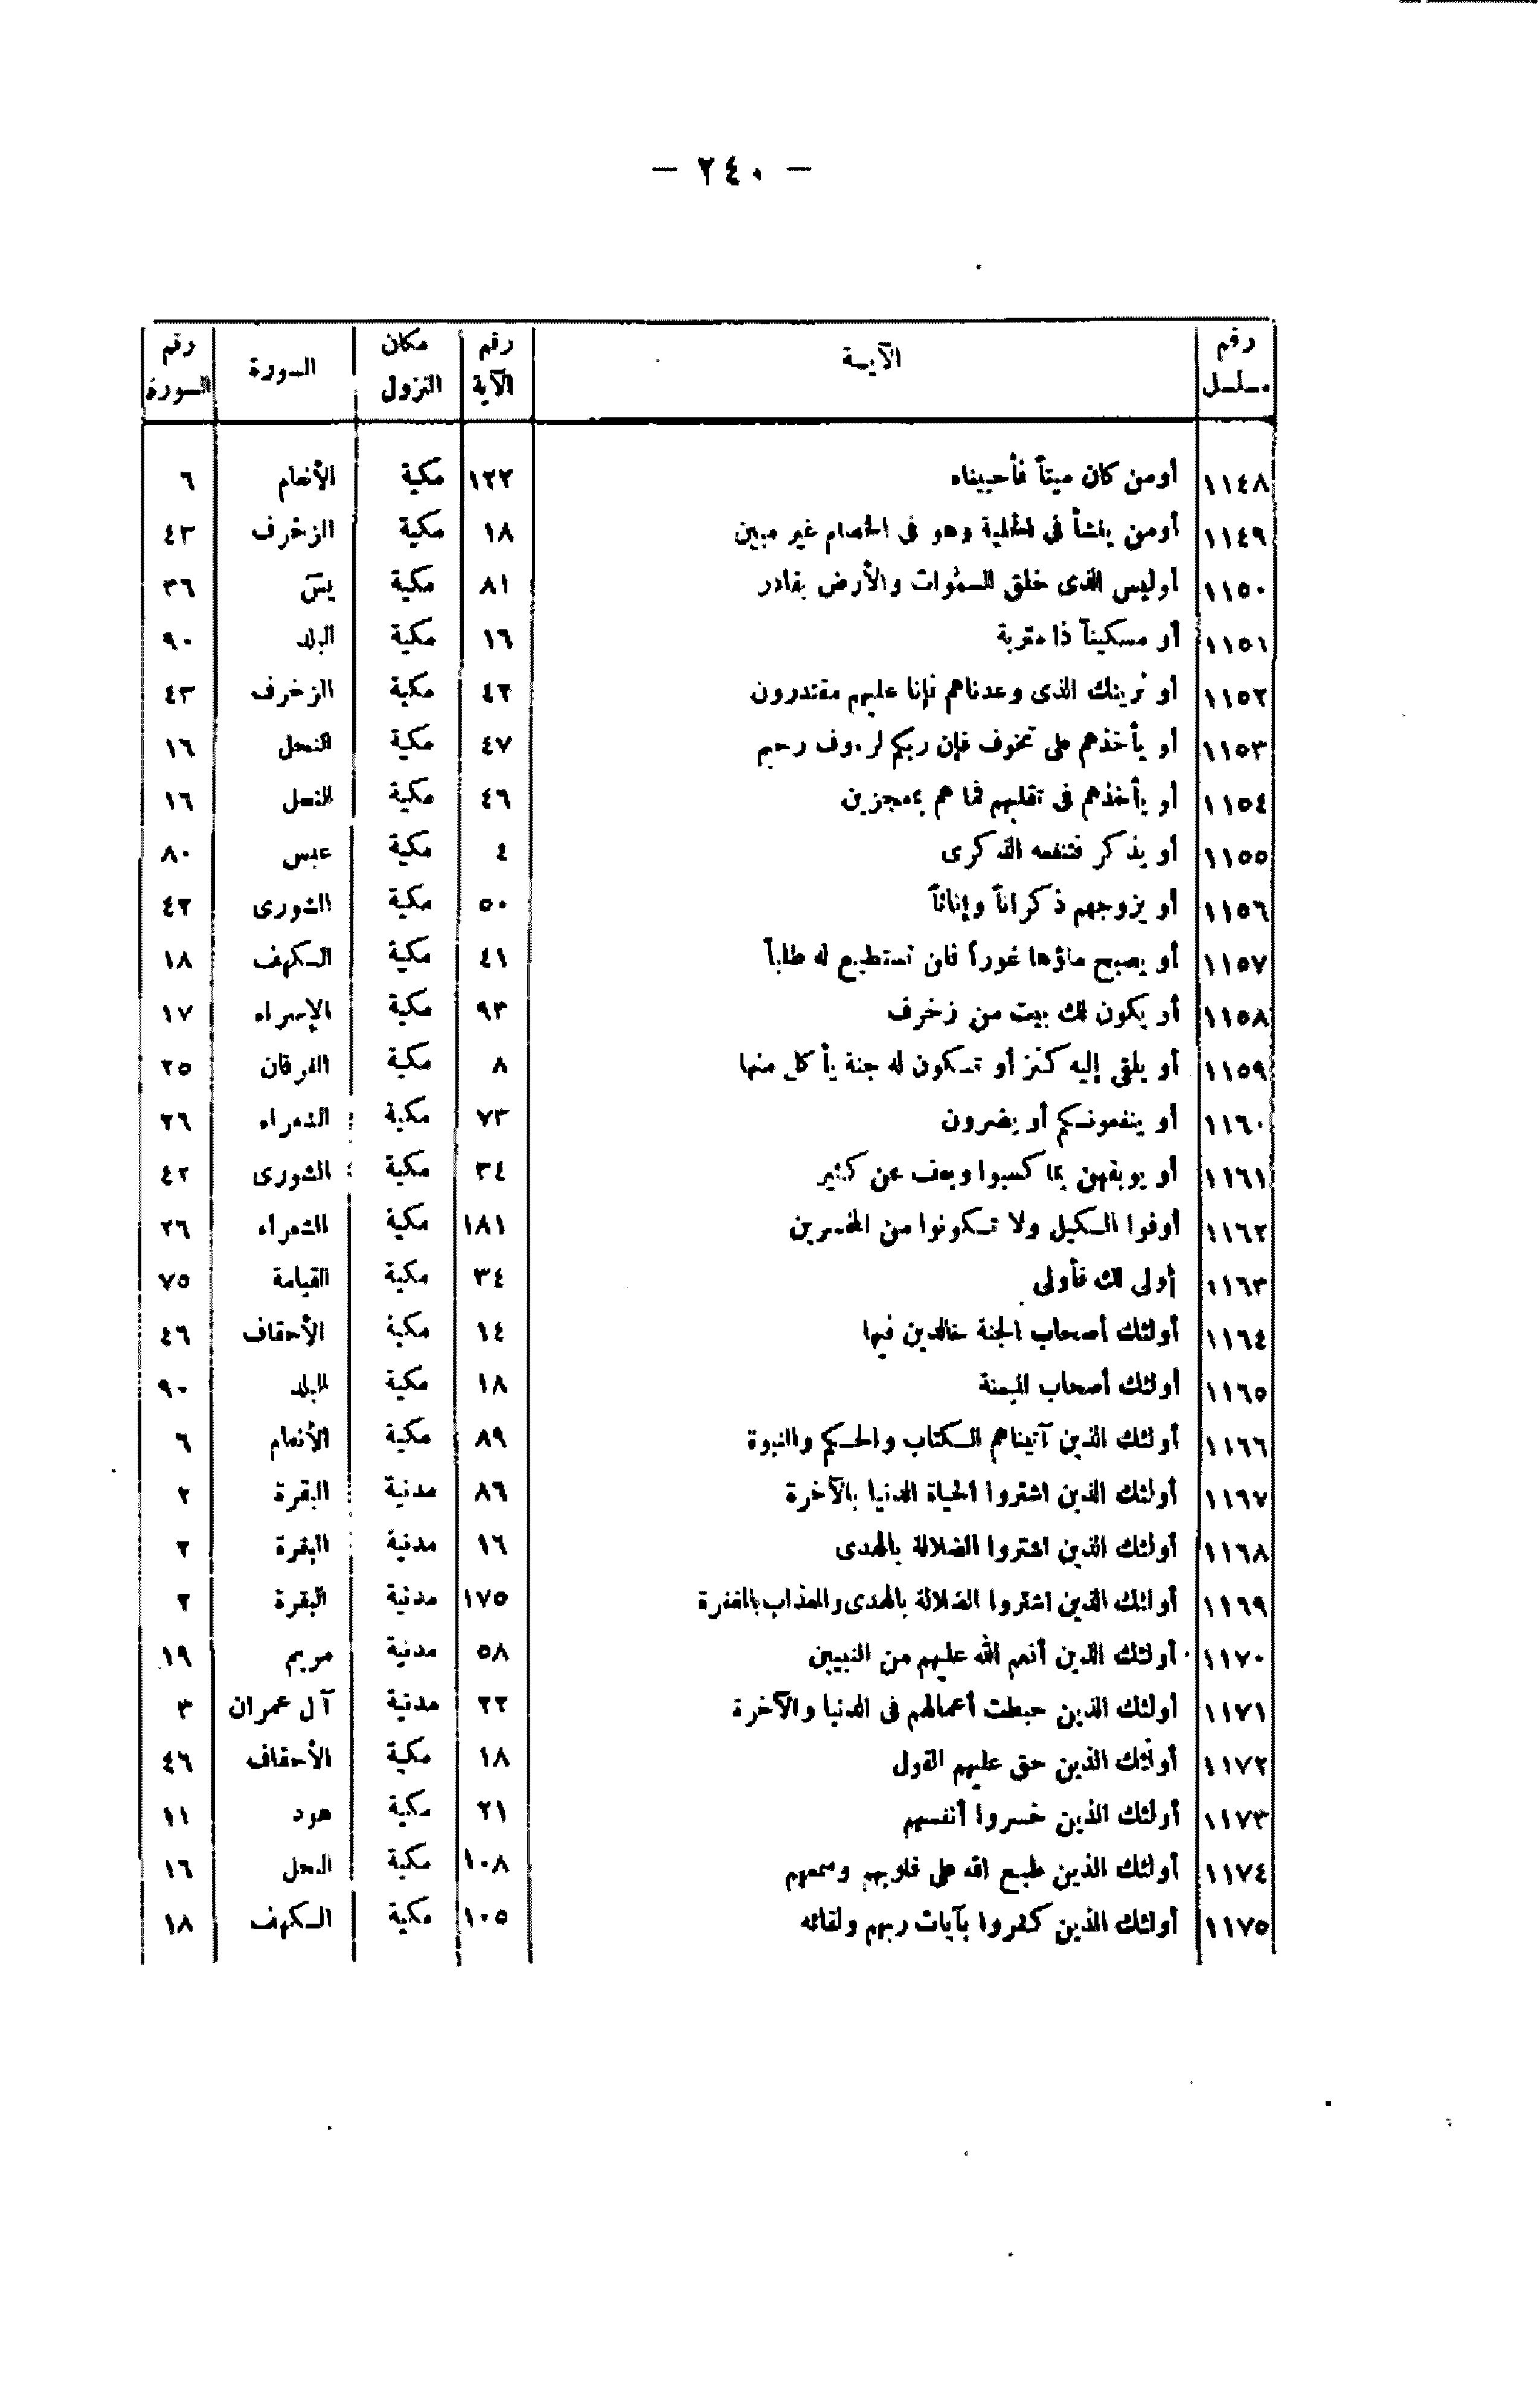 — ٢٤٠ —
رقم مسلسل | الآيـة | رقم الآية | مكان النزول | السورة | رقم السورة
١١٤٨ | أومن كان ميتاً فأحييناه | ١٢٢ | مكية | الأنعام | ٦
١١٤٩ | أومن ينشأ فى الحلية وهو فى الخصام غير مبين | ١٨ | مكية | الزخرف | ٤٣
١١٥٠ | أوليس الذى خلق السموات والأرض بقادر | ٨١ | مكية | يس | ٣٦
١١٥١ | أو مسكيناً ذا متربة | ١٦ | مكية | البلد | ٩٠
١١٥٢ | أو نرينك الذى وعدناهم فإنا عليهم مقتدرون | ٤٢ | مكية | الزخرف | ٤٣
١١٥٣ | أو يأخذهم على تخوف فإن ربكم لرءوف رحيم | ٤٧ | مكية | النحل | ١٦
١١٥٤ | أو يأخذهم فى تقلبهم فما هم بمعجزين | ٤٦ | مكية | النحل | ١٦
١١٥٥ | أو يذكر فتنفعه الذكرى | ٤ | مكية | عبس | ٨٠
١١٥٦ | أو يزوجهم ذكراناً وإناثاً | ٥٠ | مكية | الشورى | ٤٢
١١٥٧ | أو يصبح ماؤها غوراً فلن تستطيع له طلباً | ٤١ | مكية | الكهف | ١٨
١١٥٨ | أو يكون لك بيت من زخرف | ٩٣ | مكية | الإسراء | ١٧
١١٥٩ | أو يلقى إليه كنز أو تكون له جنة يأكل منها | ٨ | مكية | الفرقان | ٢٥
١١٦٠ | أو ينفعونكم أو يضرون | ٧٣ | مكية | الشعراء | ٢٦
١١٦١ | أو يوبقهن بما كسبوا ويعف عن كثير | ٣٤ | مكية | الشورى | ٤٢
١١٦٢ | أوفوا الكيل ولا تكونوا من المخسرين | ١٨١ | مكية | الشعراء | ٢٦
١١٦٣ | أولى لك فأولى | ٣٤ | مكية | القيامة | ٧٥
١١٦٤ | أولئك أصحاب الجنة خالدين فيها | ١٤ | مكية | الأحقاف | ٤٦
١١٦٥ | أولئك أصحاب الميمنة | ١٨ | مكية | البلد | ٩٠
١١٦٦ | أولئك الذين آتيناهم الكتاب والحكم والنبوة | ٨٩ | مكية | الأنعام | ٦
١١٦٧ | أولئك الذين اشتروا الحياة الدنيا بالآخرة | ٨٦ | مدنية | البقرة | ٢
١١٦٨ | أولئك الذين اشتروا الضلالة بالهدى | ١٦ | مدنية | البقرة | ٢
١١٦٩ | أولئك الذين اشتروا الضلالة بالهدى والعذاب بالمغفرة | ١٧٥ | مدنية | البقرة | ٢
١١٧٠ | أولئك الذين أنعم الله عليهم من النبيين | ٥٨ | مدنية | مريم | ١٩
١١٧١ | أولئك الذين حبطت أعمالهم فى الدنيا والآخرة | ٢٢ | مدنية | آل عمران | ٣
١١٧٢ | أولئك الذين حق عليهم القول | ١٨ | مكية | الأحقاف | ٤٦
١١٧٣ | أولئك الذين خسروا أنفسهم | ٢١ | مكية | هود | ١١
١١٧٤ | أولئك الذين طبع الله على قلوبهم وسمعهم | ١٠٨ | مكية | النحل | ١٦
١١٧٥ | أولئك الذين كفروا بآيات ربهم ولقائه | ١٠٥ | مكية | الكهف | ١٨